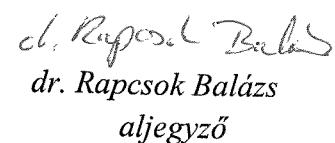 d. Rapcsok Balázs
dr. Rapcsok Balázs
aljegyző